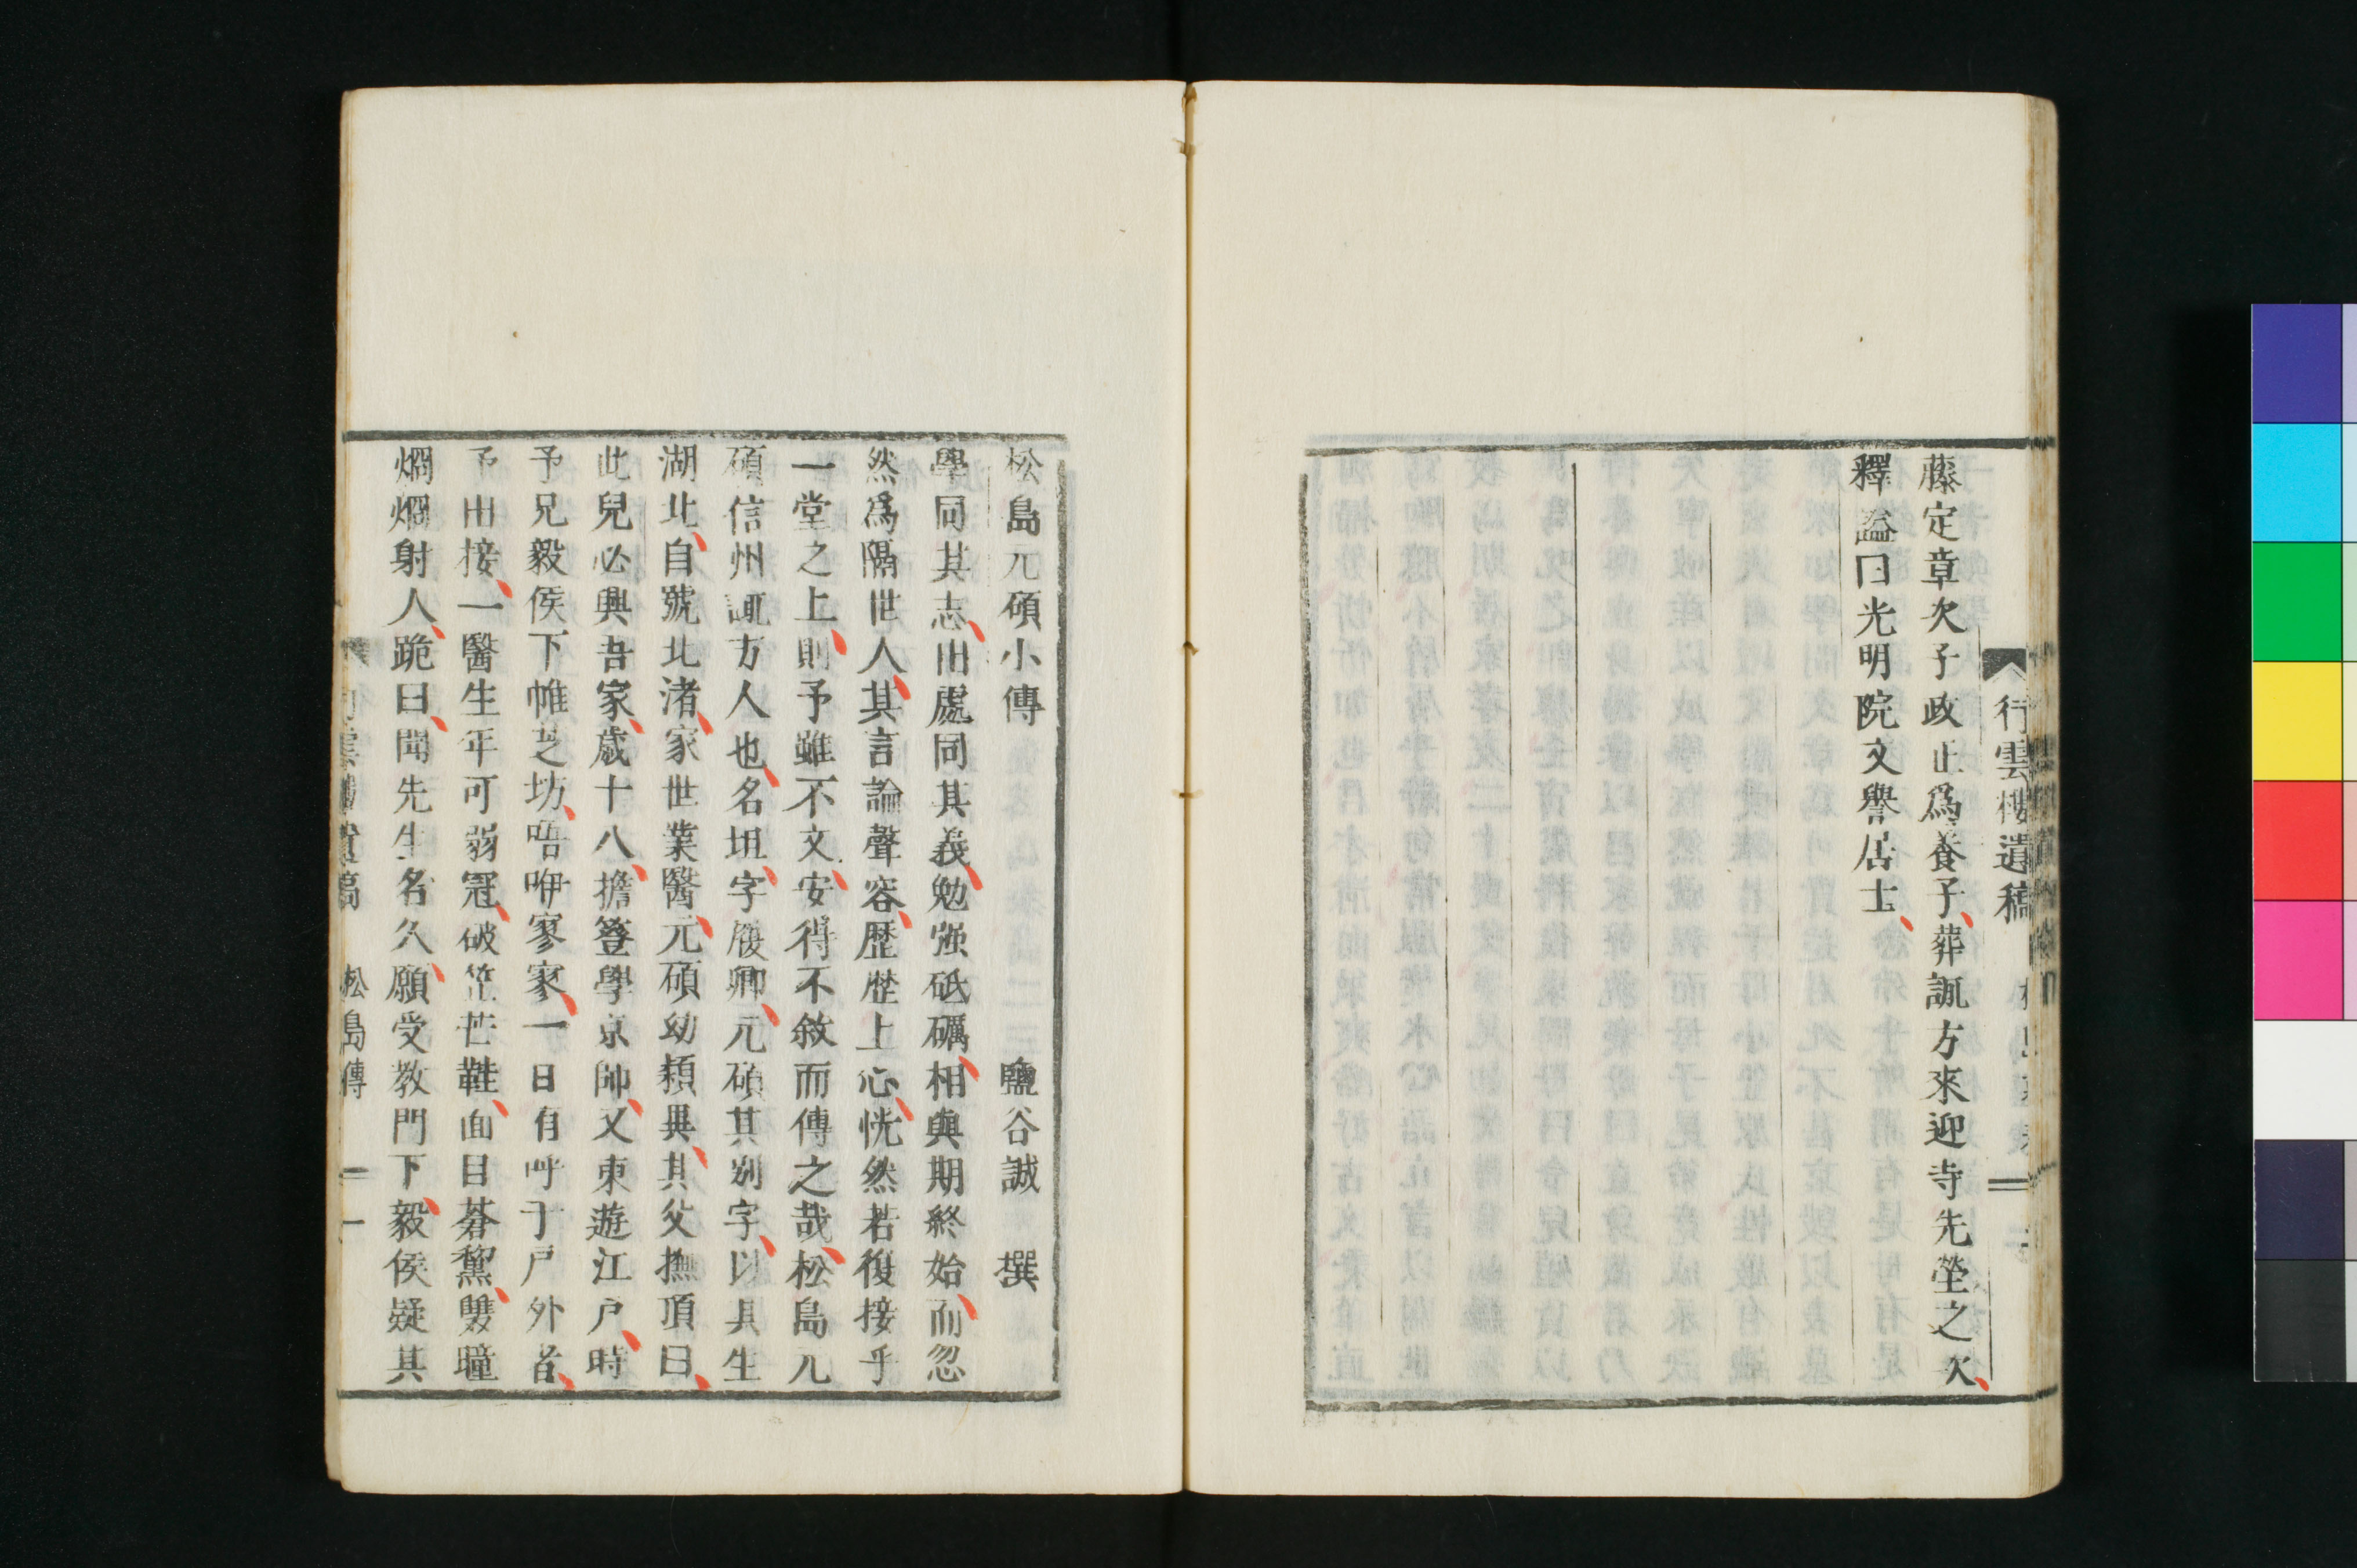 藤定章次子政正爲養子、葬諏方來迎寺先塋之次、
釋謚曰光明院文譽居士、
行雲樓遺稿
松島元碩小傳
鹽谷誠 撰
學同其志、出處同其義、勉强砥礪、相與期終始、而忽
然爲隔世人、其言論聲容、歷歷上心、恍然若復接乎
一堂之上、則予雖不文、安得不敘而傳之哉、松島元
碩信州諏方人也、名坦、字履卿、元碩其別字、以其生
湖北、自號北渚、家世業醫、元碩幼頴異、其父撫頂曰、
此兒必興吾家、歲十八、擔簦學京師、又東遊江戶、時
予兄毅侯下帷芝坊、唔咿寥寥、一日有呼于戶外者、
予出接、一醫生年可弱冠、破笠芒鞋、面目蒼黧、雙瞳
烱烱射人、跪曰、聞先生名久、願受敎門下、毅侯疑其
松島傳 一